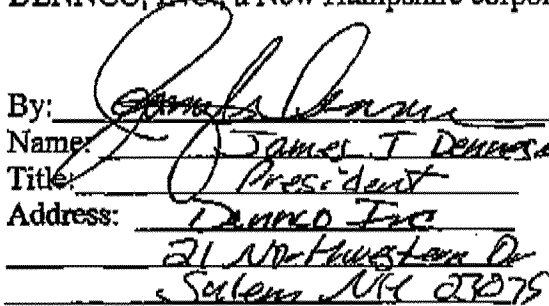 DENNCO, Inc., a New Hampshire corpor
By:
Name: James T Dennese
Title: President
Address: Dennco Inc
21 Northwestern Dr
Salem NH 23079